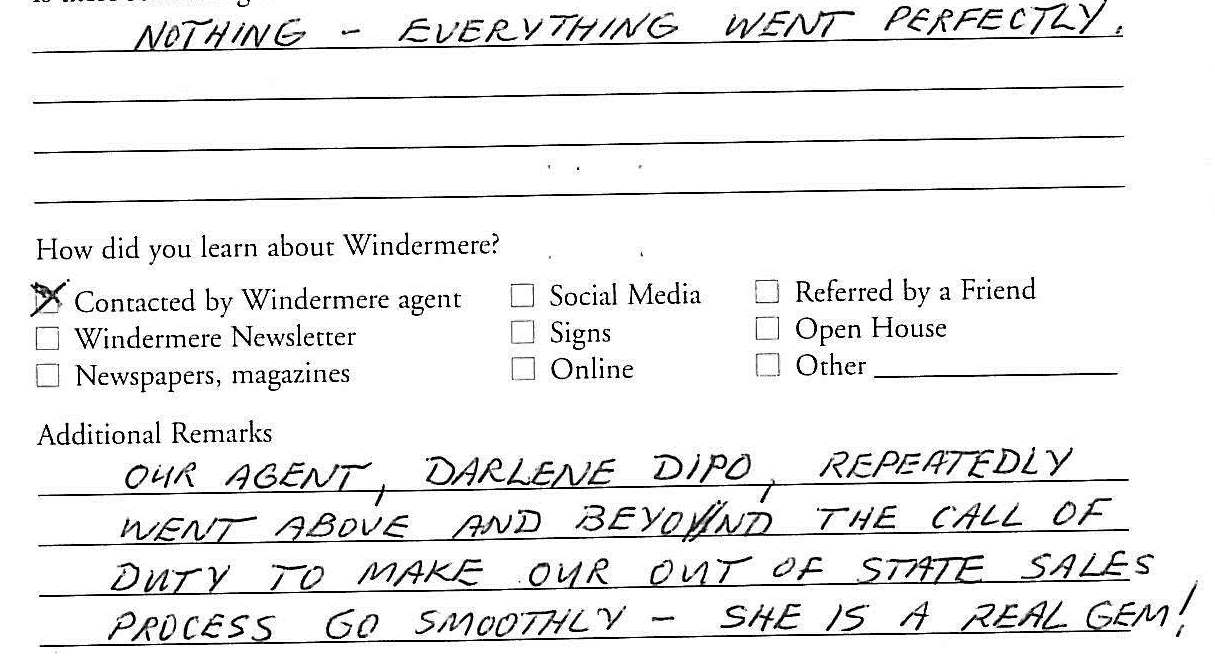 NOTHING - EVERYTHING WENT PERFECTLY.
How did you learn about Windermere?
Contacted by Windermere agent Social Media Referred by a Friend
Windermere Newsletter Signs Open House
Newspapers, magazines Online Other
Additional Remarks
OUR AGENT, DARLENE DIPO, REPEATEDLY
WENT ABOVE AND BEYOND THE CALL OF
DUTY TO MAKE OUR OUT OF STATE SALES
PROCESS GO SMOOTHLY - SHE IS A REAL GEM!